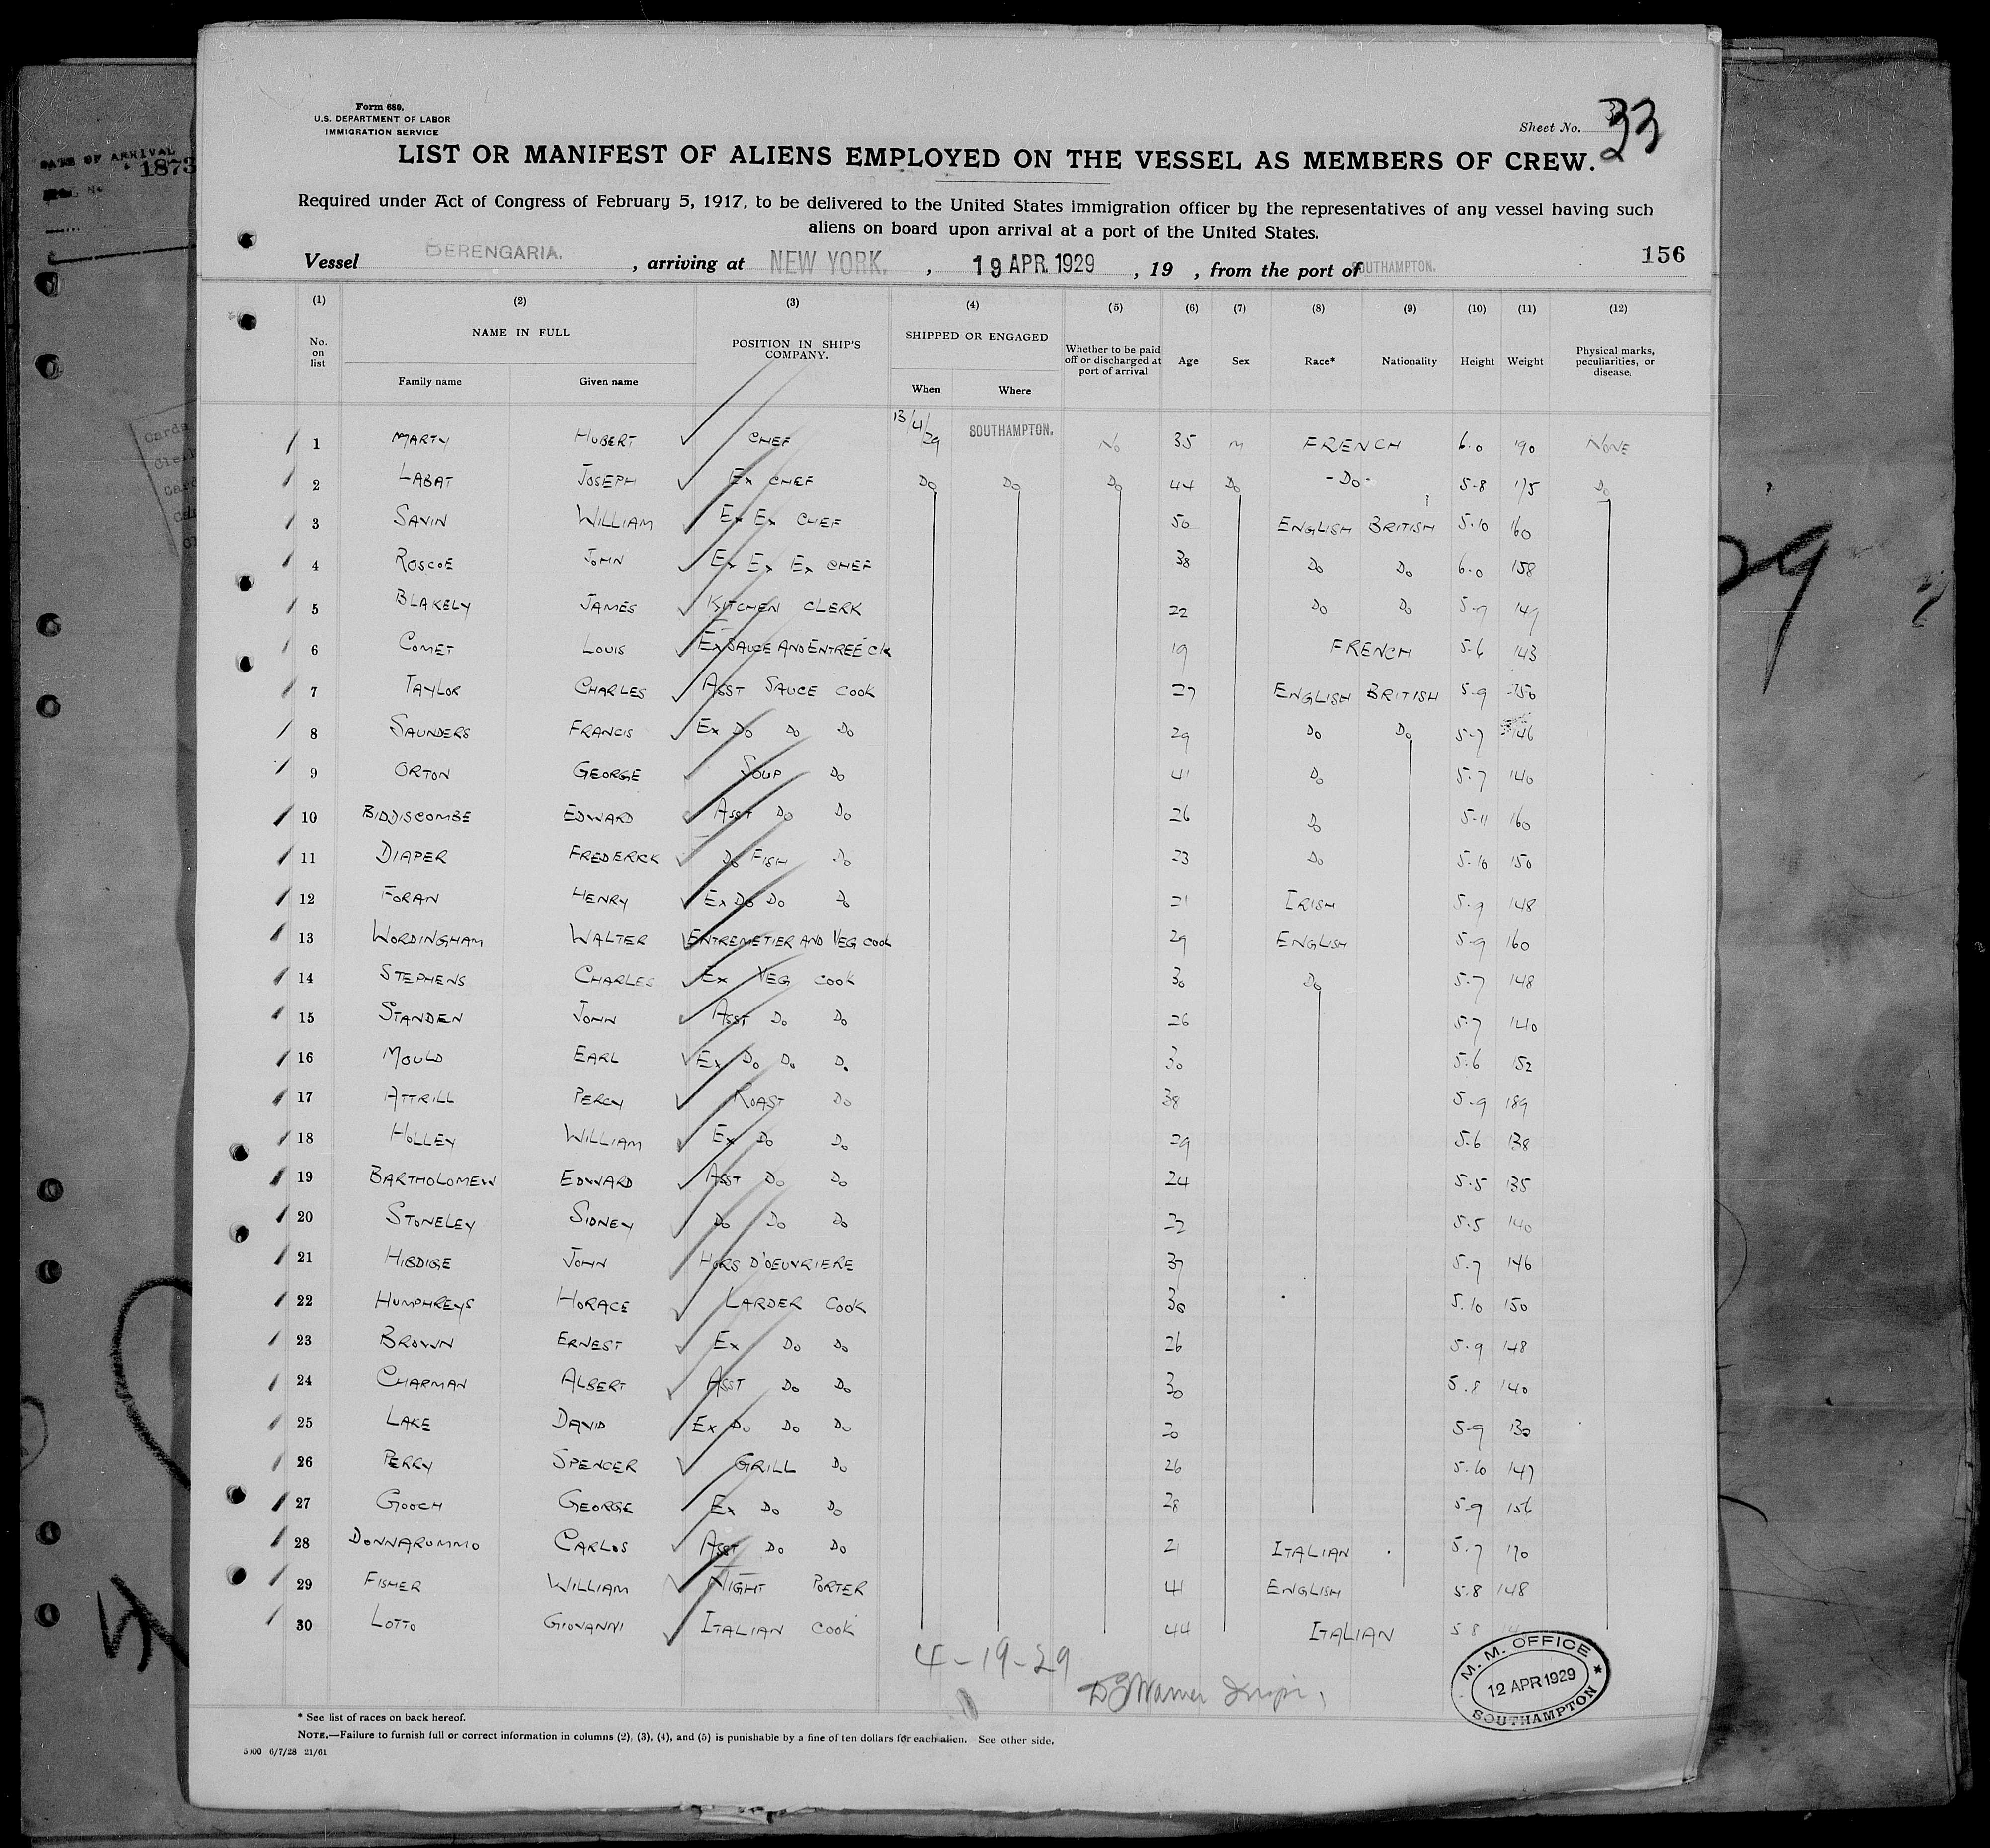 Form 680.
U.S. DEPARTMENT OF LABOR
IMMIGRATION SERVICE
DATE OF ARRIVAL
1873
Sheet No. 33
LIST OR MANIFEST OF ALIENS EMPLOYED ON THE VESSEL AS MEMBERS OF CREW.
Required under Act of Congress of February 5, 1917, to be delivered to the United States immigration officer by the representatives of any vessel having such
aliens on board upon arrival at a port of the United States.
156
Vessel BERENGARIA. , arriving at NEW YORK. , 19 APR. 1929 , 19 , from the port of SOUTHAMPTON.
(1) (2) (3) (4) (5) (6) (7) (8) (9) (10) (11) (12)
No. on list NAME IN FULL Family name Given name POSITION IN SHIP'S COMPANY. SHIPPED OR ENGAGED When Where Whether to be paid off or discharged at port of arrival Age Sex Race* Nationality Height Weight Physical marks, peculiarities, or disease.
1 MARTY HUBERT CHEF 13/4/29 SOUTHAMPTON. No 35 M FRENCH 6.0 190 NONE
2 LABAT JOSEPH Ex CHEF Do Do Do 44 Do -Do- 5-8 175 Do
3 SAVIN WILLIAM Ex Ex CHEF 50 ENGLISH BRITISH 5.10 160
4 ROSCOE JOHN Ex Ex Ex CHEF 38 Do Do 6.0 158
5 BLAKELY JAMES KITCHEN CLERK 22 Do Do 5-7 149
6 COMET LOUIS Ex SAUCE AND ENTREÉ CK 19 FRENCH 5-6 143
7 TAYLOR CHARLES ASST SAUCE COOK 27 ENGLISH BRITISH 5-9 150
8 SAUNDERS FRANCIS Ex Do Do Do 29 Do Do 5-7 146
9 ORTON GEORGE SOUP Do 41 Do 5.7 140
10 BIDDISCOMBE EDWARD ASST Do Do 26 Do 5-11 160
11 DIAPER FREDERICK Do FISH Do 23 Do 5.10 150
12 FORAN HENRY Ex Do Do Do 21 IRISH 5.9 148
13 WORDINGHAM WALTER ENTREMETIER AND VEG COOK 29 ENGLISH 5-9 160
14 STEPHENS CHARLES Ex VEG COOK 30 Do 5.7 148
15 STANDEN JOHN ASST Do Do 26 5.7 140
16 MOULD EARL Ex Do Do Do 30 5.6 152
17 ATTRILL PERCY ROAST Do 38 5-9 189
18 HOLLEY WILLIAM Ex Do Do 29 5.6 138
19 BARTHOLOMEW EDWARD ASST Do Do 24 5.5 135
20 STONELEY SIDNEY Do Do Do 5.5 140
21 HIBDIGE JOHN HORS D'OEUVRIERE 37 5.7 146
22 HUMPHREYS HORACE LARDER COOK 30 5.10 150
23 BROWN ERNEST Ex Do Do 26 5.9 148
24 CHARMAN ALBERT ASST Do Do 30 5.8 140
25 LAKE DAVID Ex Do Do Do 5-9 130
26 PERRY SPENCER GRILL Do 26 5.10 147
27 GOOCH GEORGE Ex Do Do 28 5-9 156
28 DONNAROMMO CARLOS ASST Do Do 21 ITALIAN 5.7 170
29 FISHER WILLIAM NIGHT PORTER 41 ENGLISH 5.8 148
30 LOTTO GIOVANNI ITALIAN COOK 44 ITALIAN 5.8
4-19-29
M. M. OFFICE
12 APR 1929
SOUTHAMPTON
* See list of races on back hereof.
NOTE.—Failure to furnish full or correct information in columns (2), (3), (4), and (5) is punishable by a fine of ten dollars for each alien. See other side.
5000 6/7/28 21/61